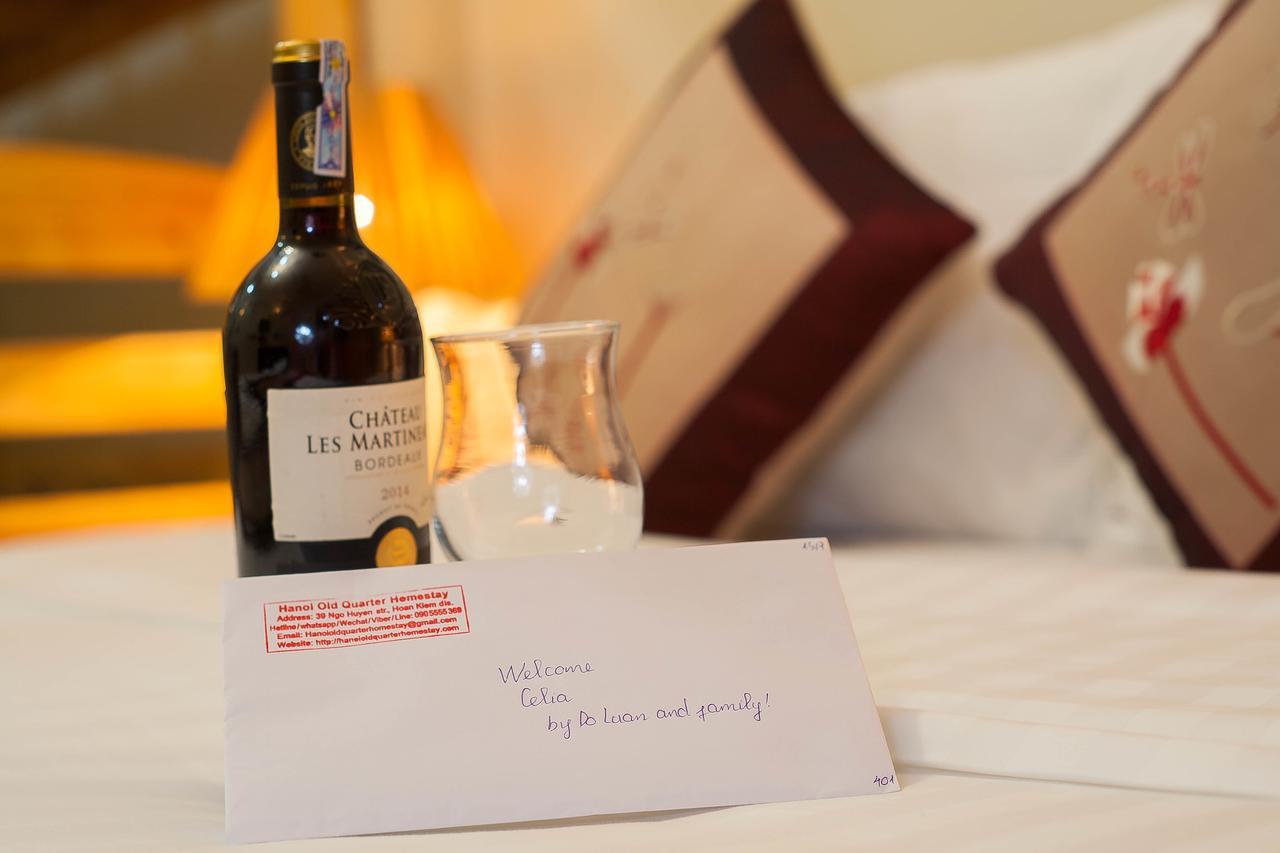 DEPUIS 1887
CHÂTEAU
LES MARTINE
BORDEAUX
2014
Hanoi Old Quarter Homestay
Address: 39 Ngo Huyen str., Hoan Kiem dis.
Hotline/whatsapp/Wechat/Viber/Line: 0905555369
Email: Hanoioldquarterhomestay@gmail.com
Website: http://hanoioldquarterhomestay.com
15/7
Welcome
Celia
by Do Luan and family!
401